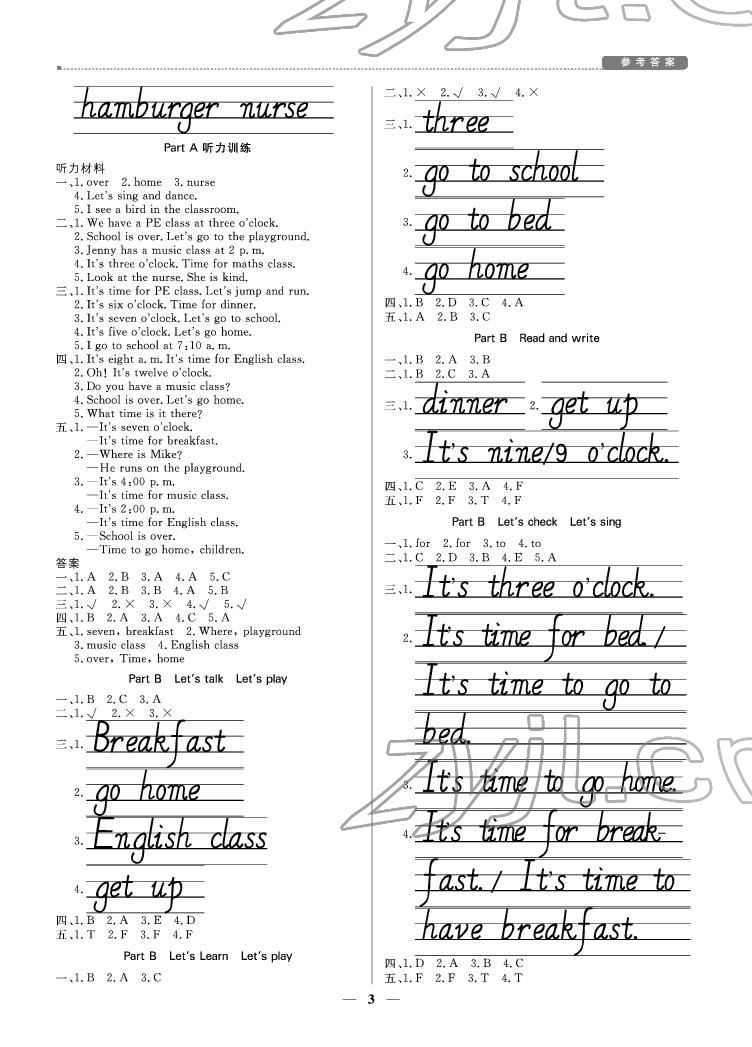 参考答案
hamburger nurse
Part A 听力训练
听力材料
一、1. over 2. home 3. nurse
4. Let's sing and dance.
5. I see a bird in the classroom.
二、1. We have a PE class at three o'clock.
2. School is over. Let's go to the playground.
3. Jenny has a music class at 2 p. m.
4. It's three o'clock. Time for maths class.
5. Look at the nurse. She is kind.
三、1. It's time for PE class. Let's jump and run.
2. It's six o'clock. Time for dinner.
3. It's seven o'clock. Let's go to school.
4. It's five o'clock. Let's go home.
5. I go to school at 7:10 a. m.
四、1. It's eight a. m. It's time for English class.
2. Oh! It's twelve o'clock.
3. Do you have a music class?
4. School is over. Let's go home.
5. What time is it there?
五、1. —It's seven o'clock.
—It's time for breakfast.
2. —Where is Mike?
—He runs on the playground.
3. —It's 4:00 p. m.
—It's time for music class.
4. —It's 2:00 p. m.
—It's time for English class.
5. —School is over.
—Time to go home, children.
答案
一、1. A 2. B 3. A 4. A 5. C
二、1. A 2. B 3. B 4. A 5. B
三、1. √ 2. × 3. × 4. √ 5. √
四、1. B 2. A 3. A 4. C 5. A
五、1. seven, breakfast 2. Where, playground
3. music class 4. English class
5. over, Time, home
Part B Let's talk Let's play
一、1. B 2. C 3. A
二、1. √ 2. × 3. ×
三、1. Breakfast
2. go home
3. English class
4. get up
四、1. B 2. A 3. E 4. D
五、1. T 2. F 3. F 4. F
Part B Let's Learn Let's play
一、1. B 2. A 3. C
二、1. × 2. √ 3. √ 4. ×
三、1. three
2. go to school
3. go to bed
4. go home
四、1. B 2. D 3. C 4. A
五、1. A 2. B 3. C
Part B Read and write
一、1. B 2. A 3. B
二、1. B 2. C 3. A
三、1. dinner 2. get up
3. It's nine/9 o'clock.
四、1. C 2. E 3. A 4. F
五、1. F 2. F 3. T 4. F
Part B Let's check Let's sing
一、1. for 2. for 3. to 4. to
二、1. C 2. D 3. B 4. E 5. A
三、1. It's three o'clock.
2. It's time for bed. /
It's time to go to
bed.
3. It's time to go home.
4. It's time for break-
fast. / It's time to
have breakfast.
四、1. D 2. A 3. B 4. C
五、1. F 2. F 3. T 4. T
— 3 —
zyjl.cn